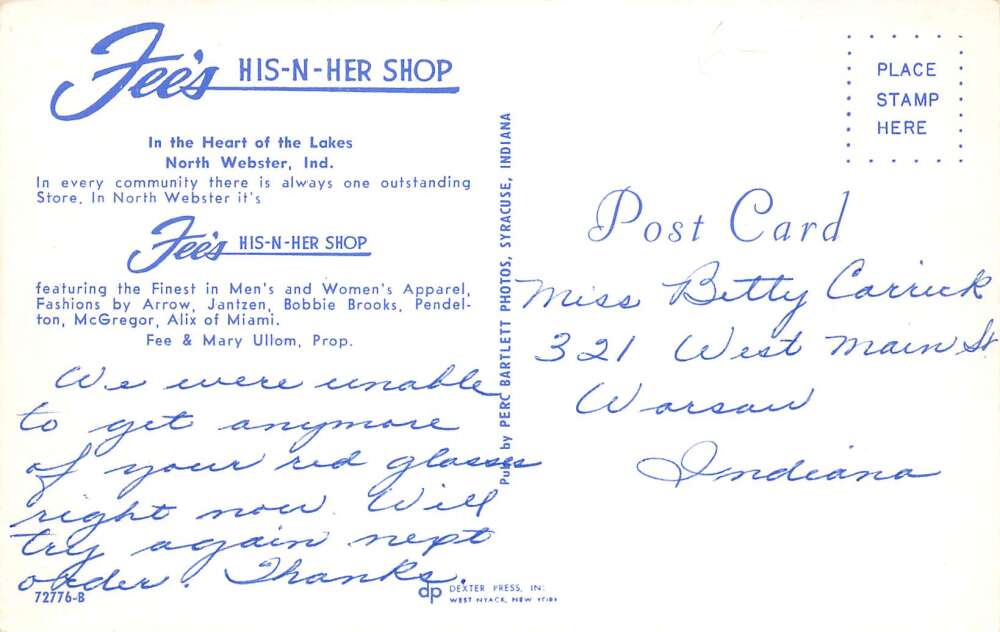 Fee's HIS-N-HER SHOP
In the Heart of the Lakes
North Webster, Ind.
In every community there is always one outstanding
Store. In North Webster it's
Fee's HIS-N-HER SHOP
featuring the Finest in Men's and Women's Apparel,
Fashions by Arrow, Jantzen, Bobbie Brooks, Pendel-
ton, McGregor, Alix of Miami.
Fee & Mary Ullom, Prop.
We were unable
to get anymore
of your red glasses
right now. Will
try again next
order. Thanks.
72776-B
Pub. by PERC BARTLETT PHOTOS, SYRACUSE, INDIANA
dp DEXTER PRESS, INC.
WEST NYACK, NEW YORK
PLACE
STAMP
HERE
Post Card
Miss Betty Carrick
321 West Main St
Warsaw
Indiana